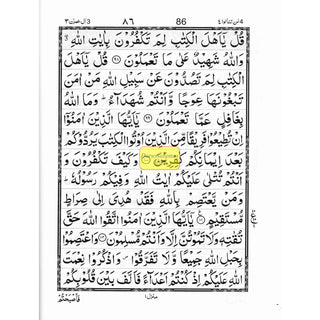 ٣ اٰل عمرٰن ٨٦ 86 لن تنالوا ٤
قُلْ يٰۤاَهْلَ الْكِتٰبِ لِمَ تَكْفُرُوْنَ بِاٰيٰتِ اللّٰهِ ۖ
وَاللّٰهُ شَهِيْدٌ عَلٰى مَا تَعْمَلُوْنَ ۝٩٨ قُلْ يٰۤاَهْلَ
الْكِتٰبِ لِمَ تَصُدُّوْنَ عَنْ سَبِيْلِ اللّٰهِ مَنْ اٰمَنَ
تَبْغُوْنَهَا عِوَجًا وَّاَنْتُمْ شُهَدَآءُ ؕ وَمَا اللّٰهُ
بِغَافِلٍ عَمَّا تَعْمَلُوْنَ ۝٩٩ يٰۤاَيُّهَا الَّذِيْنَ اٰمَنُوْۤا
اِنْ تُطِيْعُوْا فَرِيْقًا مِّنَ الَّذِيْنَ اُوْتُوا الْكِتٰبَ يَرُدُّوْكُمْ
بَعْدَ اِيْمَانِكُمْ كٰفِرِيْنَ ۝١٠٠ وَكَيْفَ تَكْفُرُوْنَ وَ
اَنْتُمْ تُتْلٰى عَلَيْكُمْ اٰيٰتُ اللّٰهِ وَفِيْكُمْ رَسُوْلُهٗ ؕ
وَمَنْ يَّعْتَصِمْ بِاللّٰهِ فَقَدْ هُدِيَ اِلٰى صِرَاطٍ
مُّسْتَقِيْمٍ ۝١٠١ يٰۤاَيُّهَا الَّذِيْنَ اٰمَنُوا اتَّقُوا اللّٰهَ حَقَّ
تُقٰتِهٖ وَلَا تَمُوْتُنَّ اِلَّا وَاَنْتُمْ مُّسْلِمُوْنَ ۝١٠٢ وَاعْتَصِمُوْا
بِحَبْلِ اللّٰهِ جَمِيْعًا وَّلَا تَفَرَّقُوْا ۪ وَاذْكُرُوْا نِعْمَتَ
اللّٰهِ عَلَيْكُمْ اِذْ كُنْتُمْ اَعْدَآءً فَاَلَّفَ بَيْنَ قُلُوْبِكُمْ
منزل ١ فَاَصْبَحْتُمْ